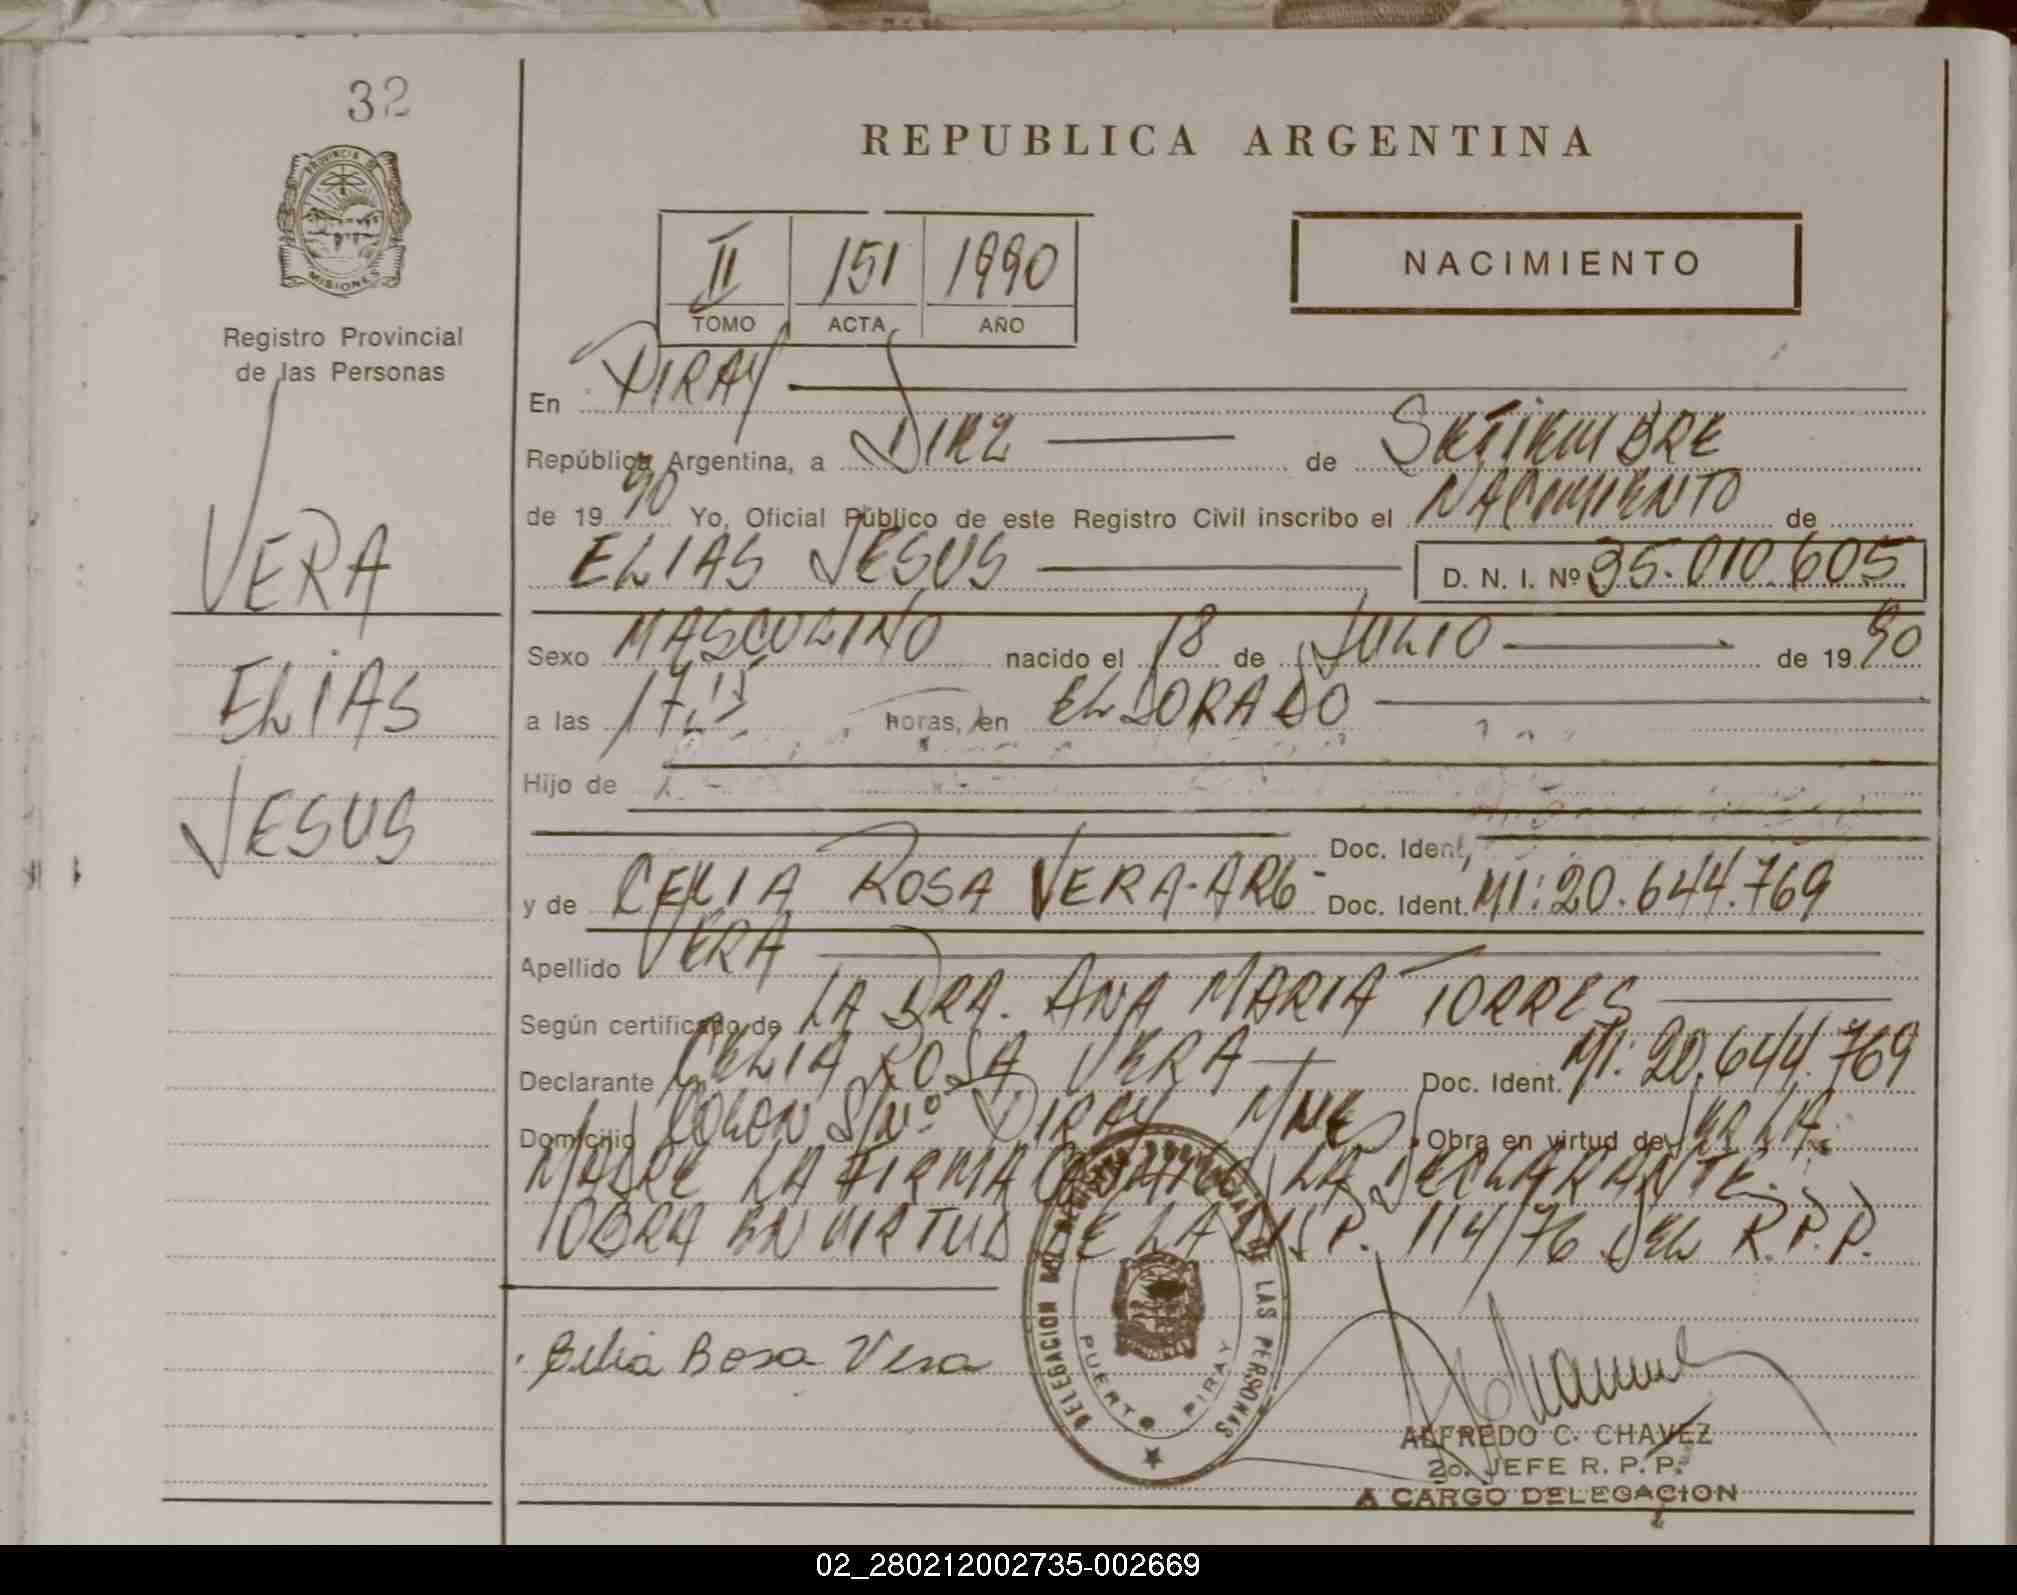 32
PROVINCIA DE
MISIONES
Registro Provincial
de las Personas
VERA
ELIAS
JESUS
REPUBLICA ARGENTINA
II 151 1990
TOMO ACTA AÑO
NACIMIENTO
En PIRAY
República Argentina, a DIEZ de SETIEMBRE
de 1990 Yo, Oficial Público de este Registro Civil inscribo el NACIMIENTO de
ELIAS JESUS D. N. I. Nº 35.010.605
Sexo MASCULINO nacido el 18 de JULIO de 1990
a las 17,15 horas, en ELDORADO
Hijo de
Doc. Ident.
y de CELIA ROSA VERA-ARG- Doc. Ident. MI: 20.644.769
Apellido VERA
Según certificado de LA DRA. ANA MARIA TORRES
Declarante CELIA ROSA VERA Doc. Ident. MI: 20.644.769
Domicilio COLON S/Nº PIRAY MNES Obra en virtud de SER LA
MADRE LA FIRMA LA DECLARANTE.
OBRA EN VIRTUD DE LA DISP. 114/76 DEL R.P.P.
Celia Rosa Vera
DELEGACION DE LAS PERSONAS
PUERTO PIRAY
ALFREDO C. CHAVEZ
2o. JEFE R. P. P.
A CARGO DELEGACION
02_280212002735-002669